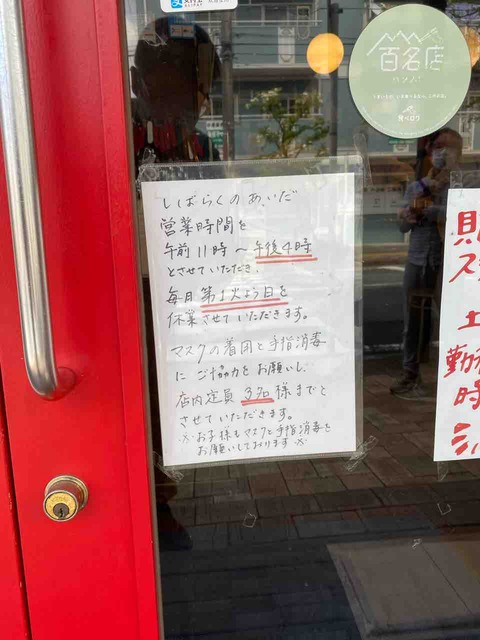 ALIPAY
百名店
パン
食べログ
しばらくのあいだ
営業時間を
午前11時〜午後4時
とさせていただき、
毎月第1火よう日を
休業させていただきます。
マスクの着用と手指消毒
にご協力をお願いし、
店内定員3名様までと
させていただきます。
※お子様もマスクと手指消毒を
お願いしております※
土
時